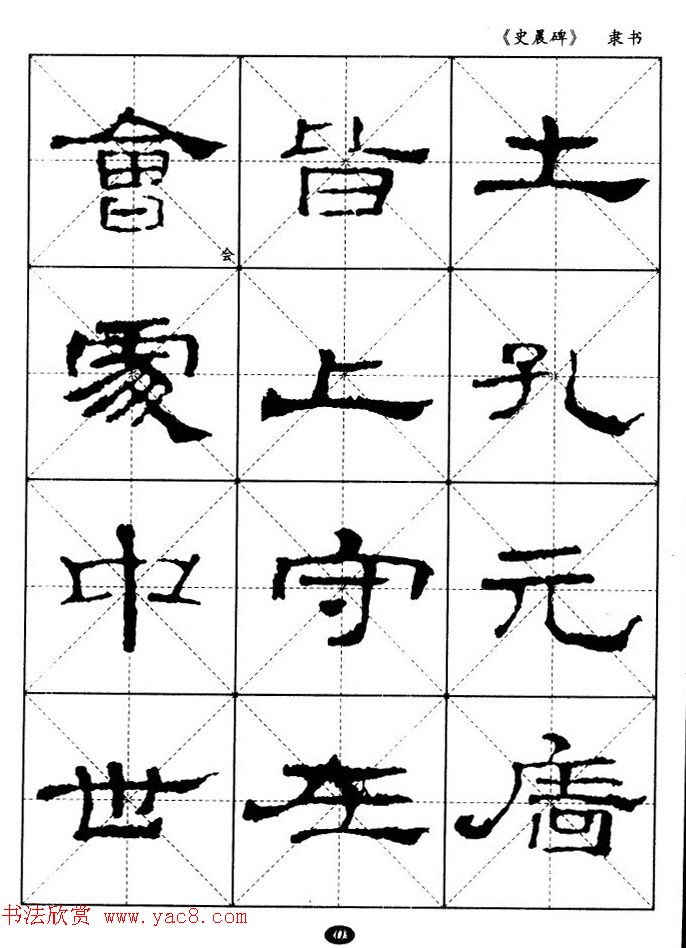 《史晨碑》 隶书
土孔元
皆上守在
會蒙中世
会
书法欣赏 www.yac8.com